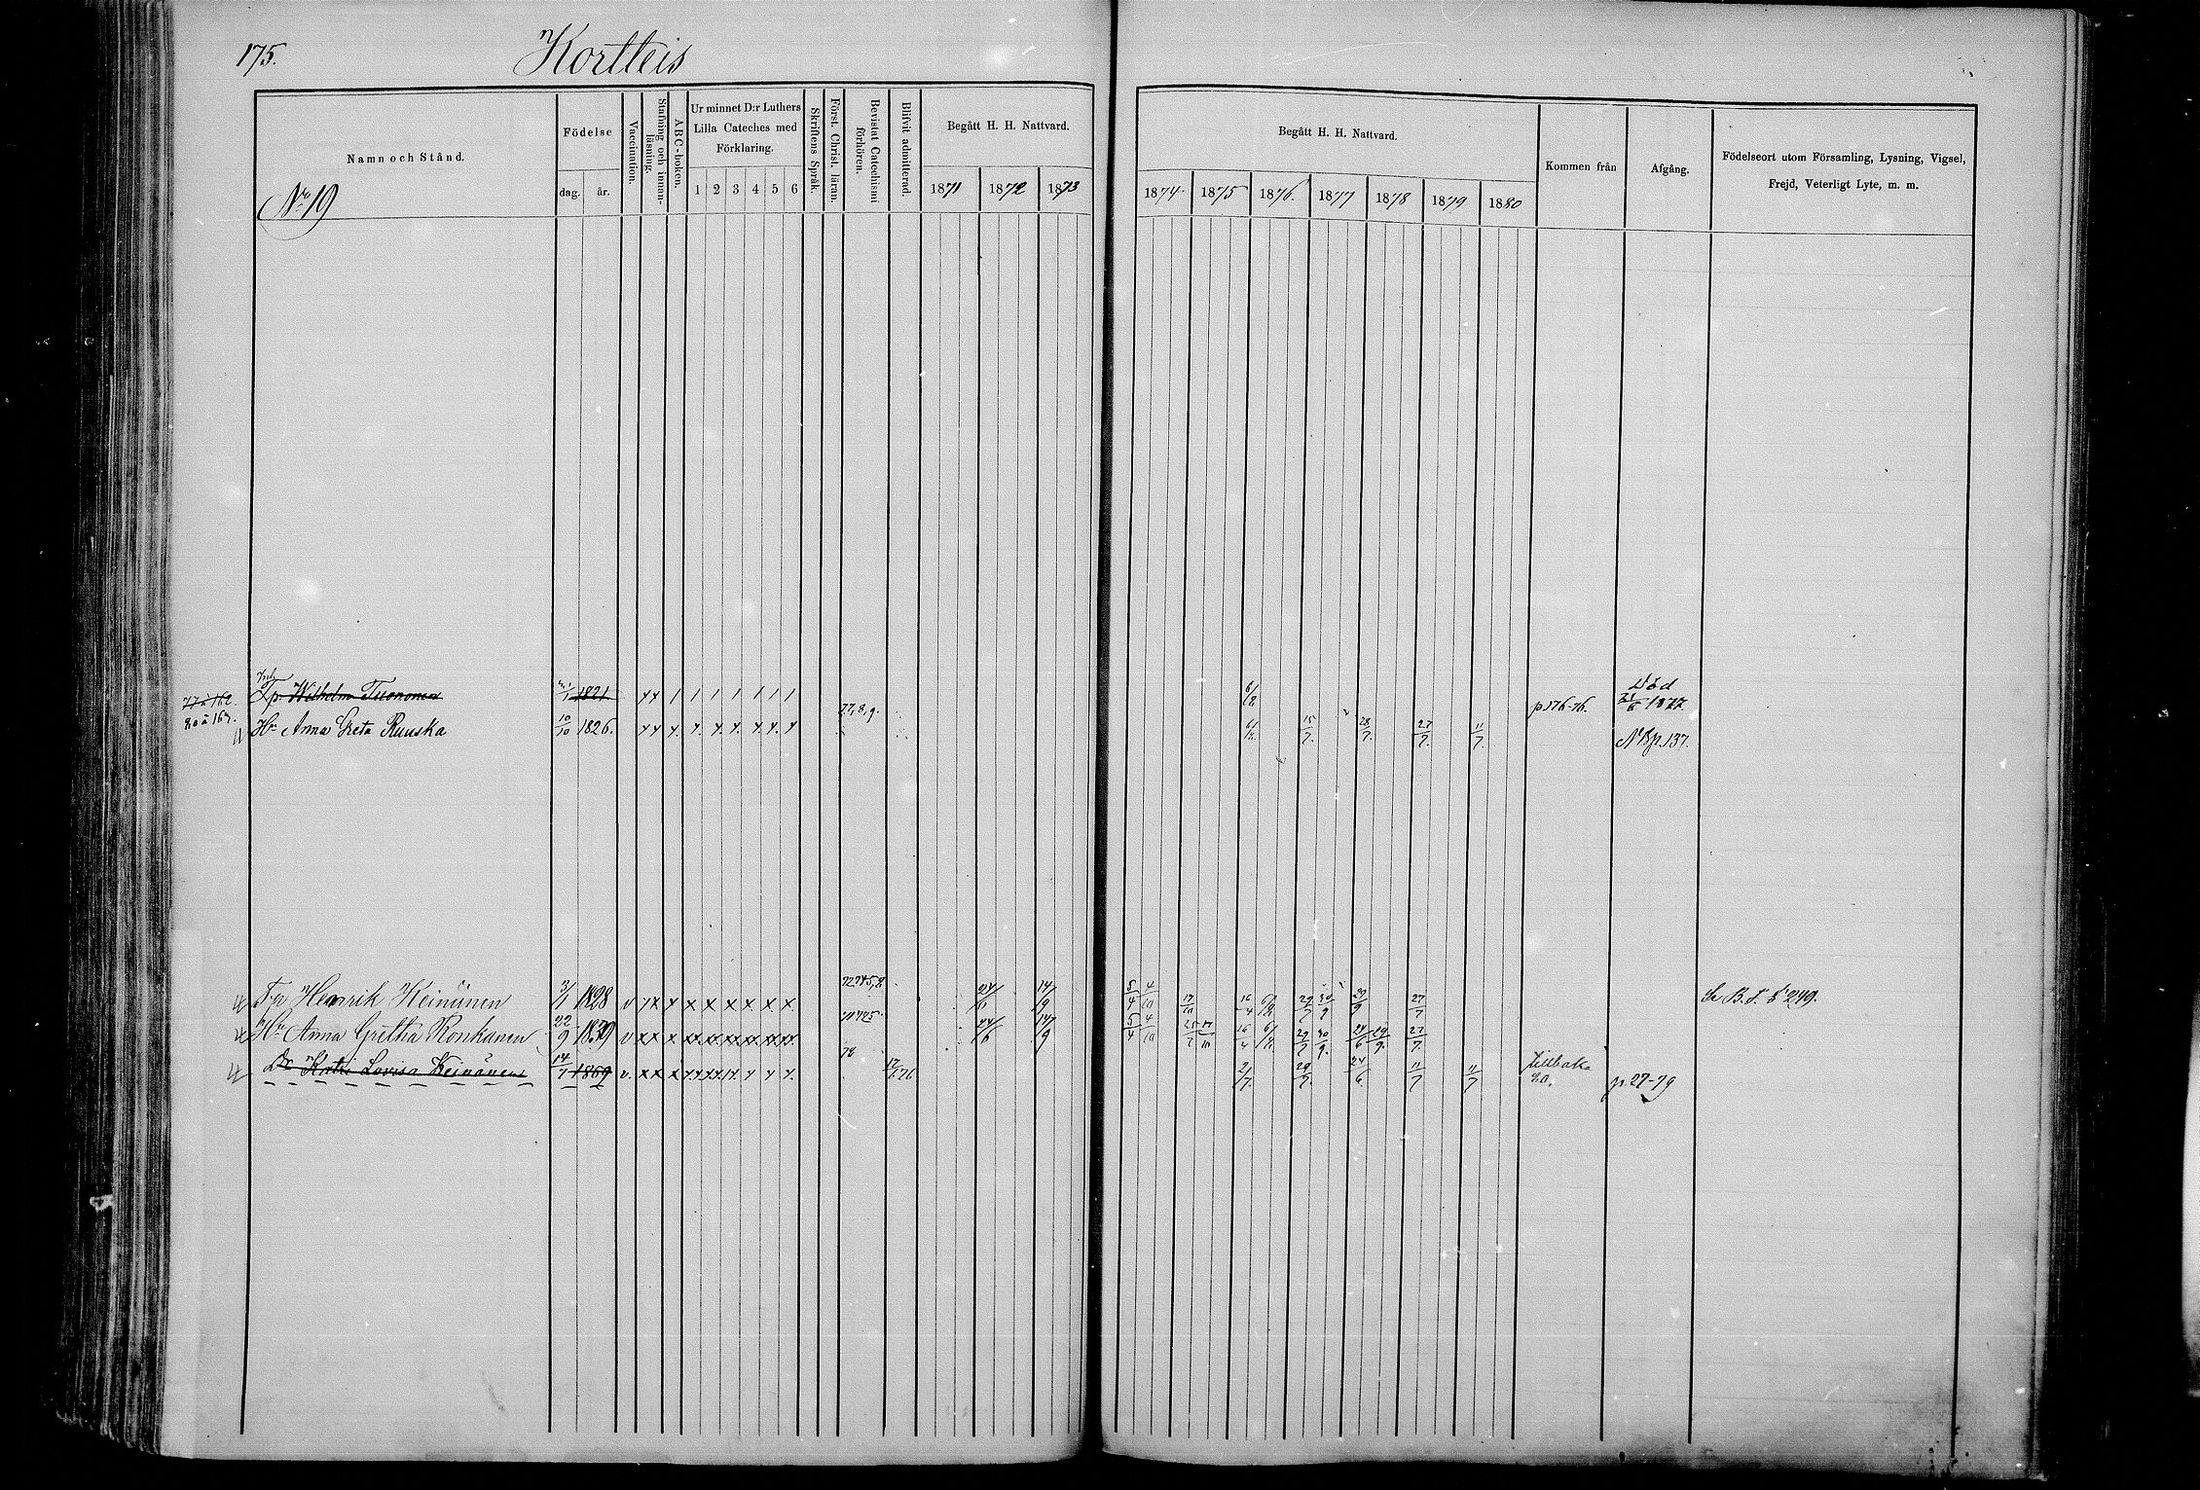 175. Kortteis
Namn och Stånd.
No 19
Födelse
dag. år.
Vaccination.
Stafning och innanläsning.
ABC-boken.
Ur minnet D:r Luthers Lilla Cateches med Förklaring.
1 2 3 4 5 6
Skriftens Språk.
Först. Christ. läran.
Bevistat Catechismi förhören.
Blifvit admitterad.
Begått H. H. Nattvard.
1871 1872 1873
Begått H. H. Nattvard.
1874. 1875 1876. 1877 1878 1879 1880
Kommen från
Afgång.
Födelseort utom Församling, Lysning, Vigsel, Frejd, Veterligt Lyte, m. m.
Tp Wilhelm Tuononen 1821 6/12 p 176-76. Död 1877
Hu Anna Greta Ruuska 10/10 1826. 77,8,9. 6/12. 15/7. 28/7. 27/7. 11/7. p. 137.
Tp Henrik Keinänen 3/1 1828 v 24/6 14/9 5/4 4/10 17/10 16/4 6/12 29/7 30/9 29/9 27/7 B. f. 249.
Hu Anna Gretha Ronkanen 22/9 1839 v 24/6 14/9 5/4 4/10 25/7 17/10 16/4 6/12 29/7 30/9. 24/6 29/9. 27/7.
Dr Lovisa Keinänen 14/7 1859 v. 78 2/7. 29/7. 24/6. 11/7 11/7 tillbaka 80. p. 27-79